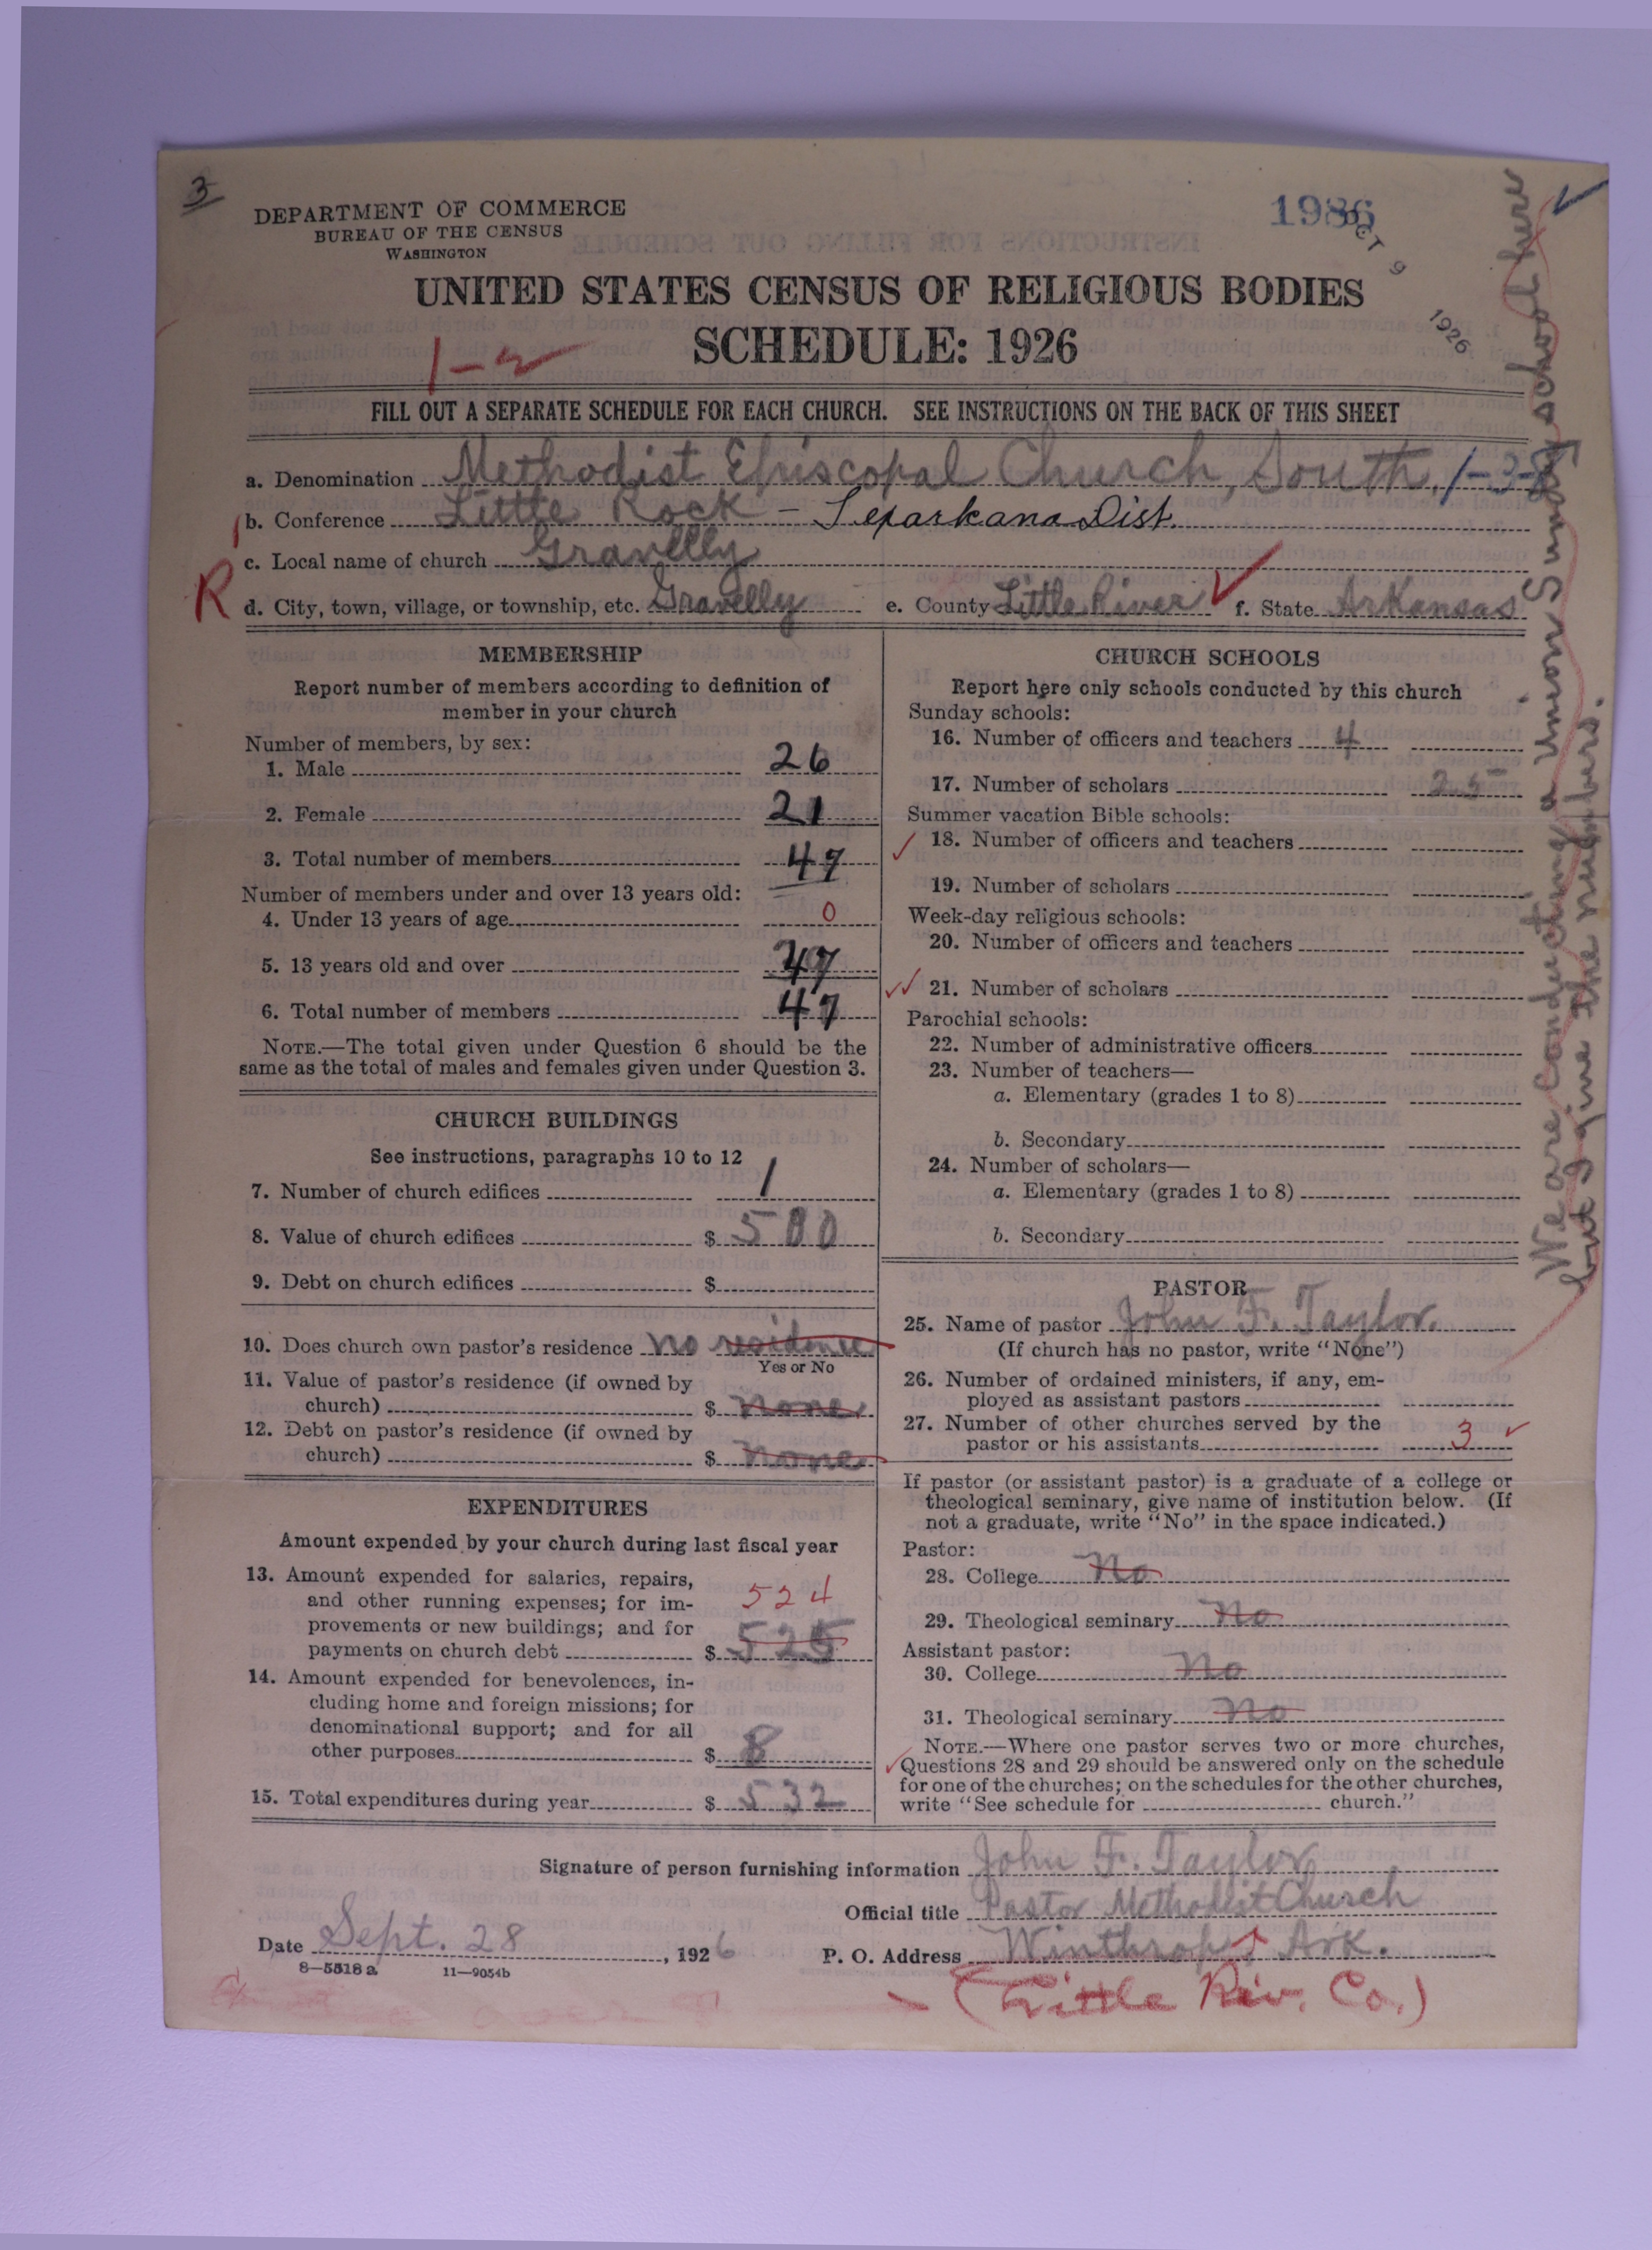 3
DEPARTMENT OF COMMERCE
BUREAU OF THE CENSUS
WASHINGTON
1986
OCT 9 1926
UNITED STATES CENSUS OF RELIGIOUS BODIES
SCHEDULE: 1926
1-2
FILL OUT A SEPARATE SCHEDULE FOR EACH CHURCH. SEE INSTRUCTIONS ON THE BACK OF THIS SHEET
a. Denomination Methodist Episcopal Church, South. 1-3-8
b. Conference Little Rock - Texarkana Dist.
c. Local name of church Gravelly
R d. City, town, village, or township, etc. Gravelly e. County Little River f. State Arkansas
MEMBERSHIP
Report number of members according to definition of
member in your church
Number of members, by sex:
1. Male 26
2. Female 21
3. Total number of members 47
Number of members under and over 13 years old:
4. Under 13 years of age 0
5. 13 years old and over 47
6. Total number of members 47
NOTE.—The total given under Question 6 should be the
same as the total of males and females given under Question 3.
CHURCH BUILDINGS
See instructions, paragraphs 10 to 12
7. Number of church edifices 1
8. Value of church edifices $ 500
9. Debt on church edifices $
10. Does church own pastor's residence no residence
Yes or No
11. Value of pastor's residence (if owned by
church) $ none
12. Debt on pastor's residence (if owned by
church) $ none
EXPENDITURES
Amount expended by your church during last fiscal year
13. Amount expended for salaries, repairs,
and other running expenses; for im- 524
provements or new buildings; and for
payments on church debt $ 525
14. Amount expended for benevolences, in-
cluding home and foreign missions; for
denominational support; and for all
other purposes $ 8
15. Total expenditures during year $ 532
CHURCH SCHOOLS
Report here only schools conducted by this church
Sunday schools:
16. Number of officers and teachers 4
17. Number of scholars 25
Summer vacation Bible schools:
18. Number of officers and teachers
19. Number of scholars
Week-day religious schools:
20. Number of officers and teachers
21. Number of scholars
Parochial schools:
22. Number of administrative officers
23. Number of teachers—
a. Elementary (grades 1 to 8)
b. Secondary
24. Number of scholars—
a. Elementary (grades 1 to 8)
b. Secondary
PASTOR
25. Name of pastor John F. Taylor.
(If church has no pastor, write "None")
26. Number of ordained ministers, if any, em-
ployed as assistant pastors
27. Number of other churches served by the
pastor or his assistants 3
If pastor (or assistant pastor) is a graduate of a college or
theological seminary, give name of institution below. (If
not a graduate, write "No" in the space indicated.)
Pastor:
28. College No
29. Theological seminary No
Assistant pastor:
30. College No
31. Theological seminary No
NOTE.—Where one pastor serves two or more churches,
Questions 28 and 29 should be answered only on the schedule
for one of the churches; on the schedules for the other churches,
write "See schedule for church."
We are conducting a Union Sunday school here
but give the numbers.
Signature of person furnishing information John F. Taylor
Official title Pastor Methodist Church
Date Sept. 28, 1926 P. O. Address Winthrop, Ark.
8—5518 a 11—9054b
(Little Riv. Co.)